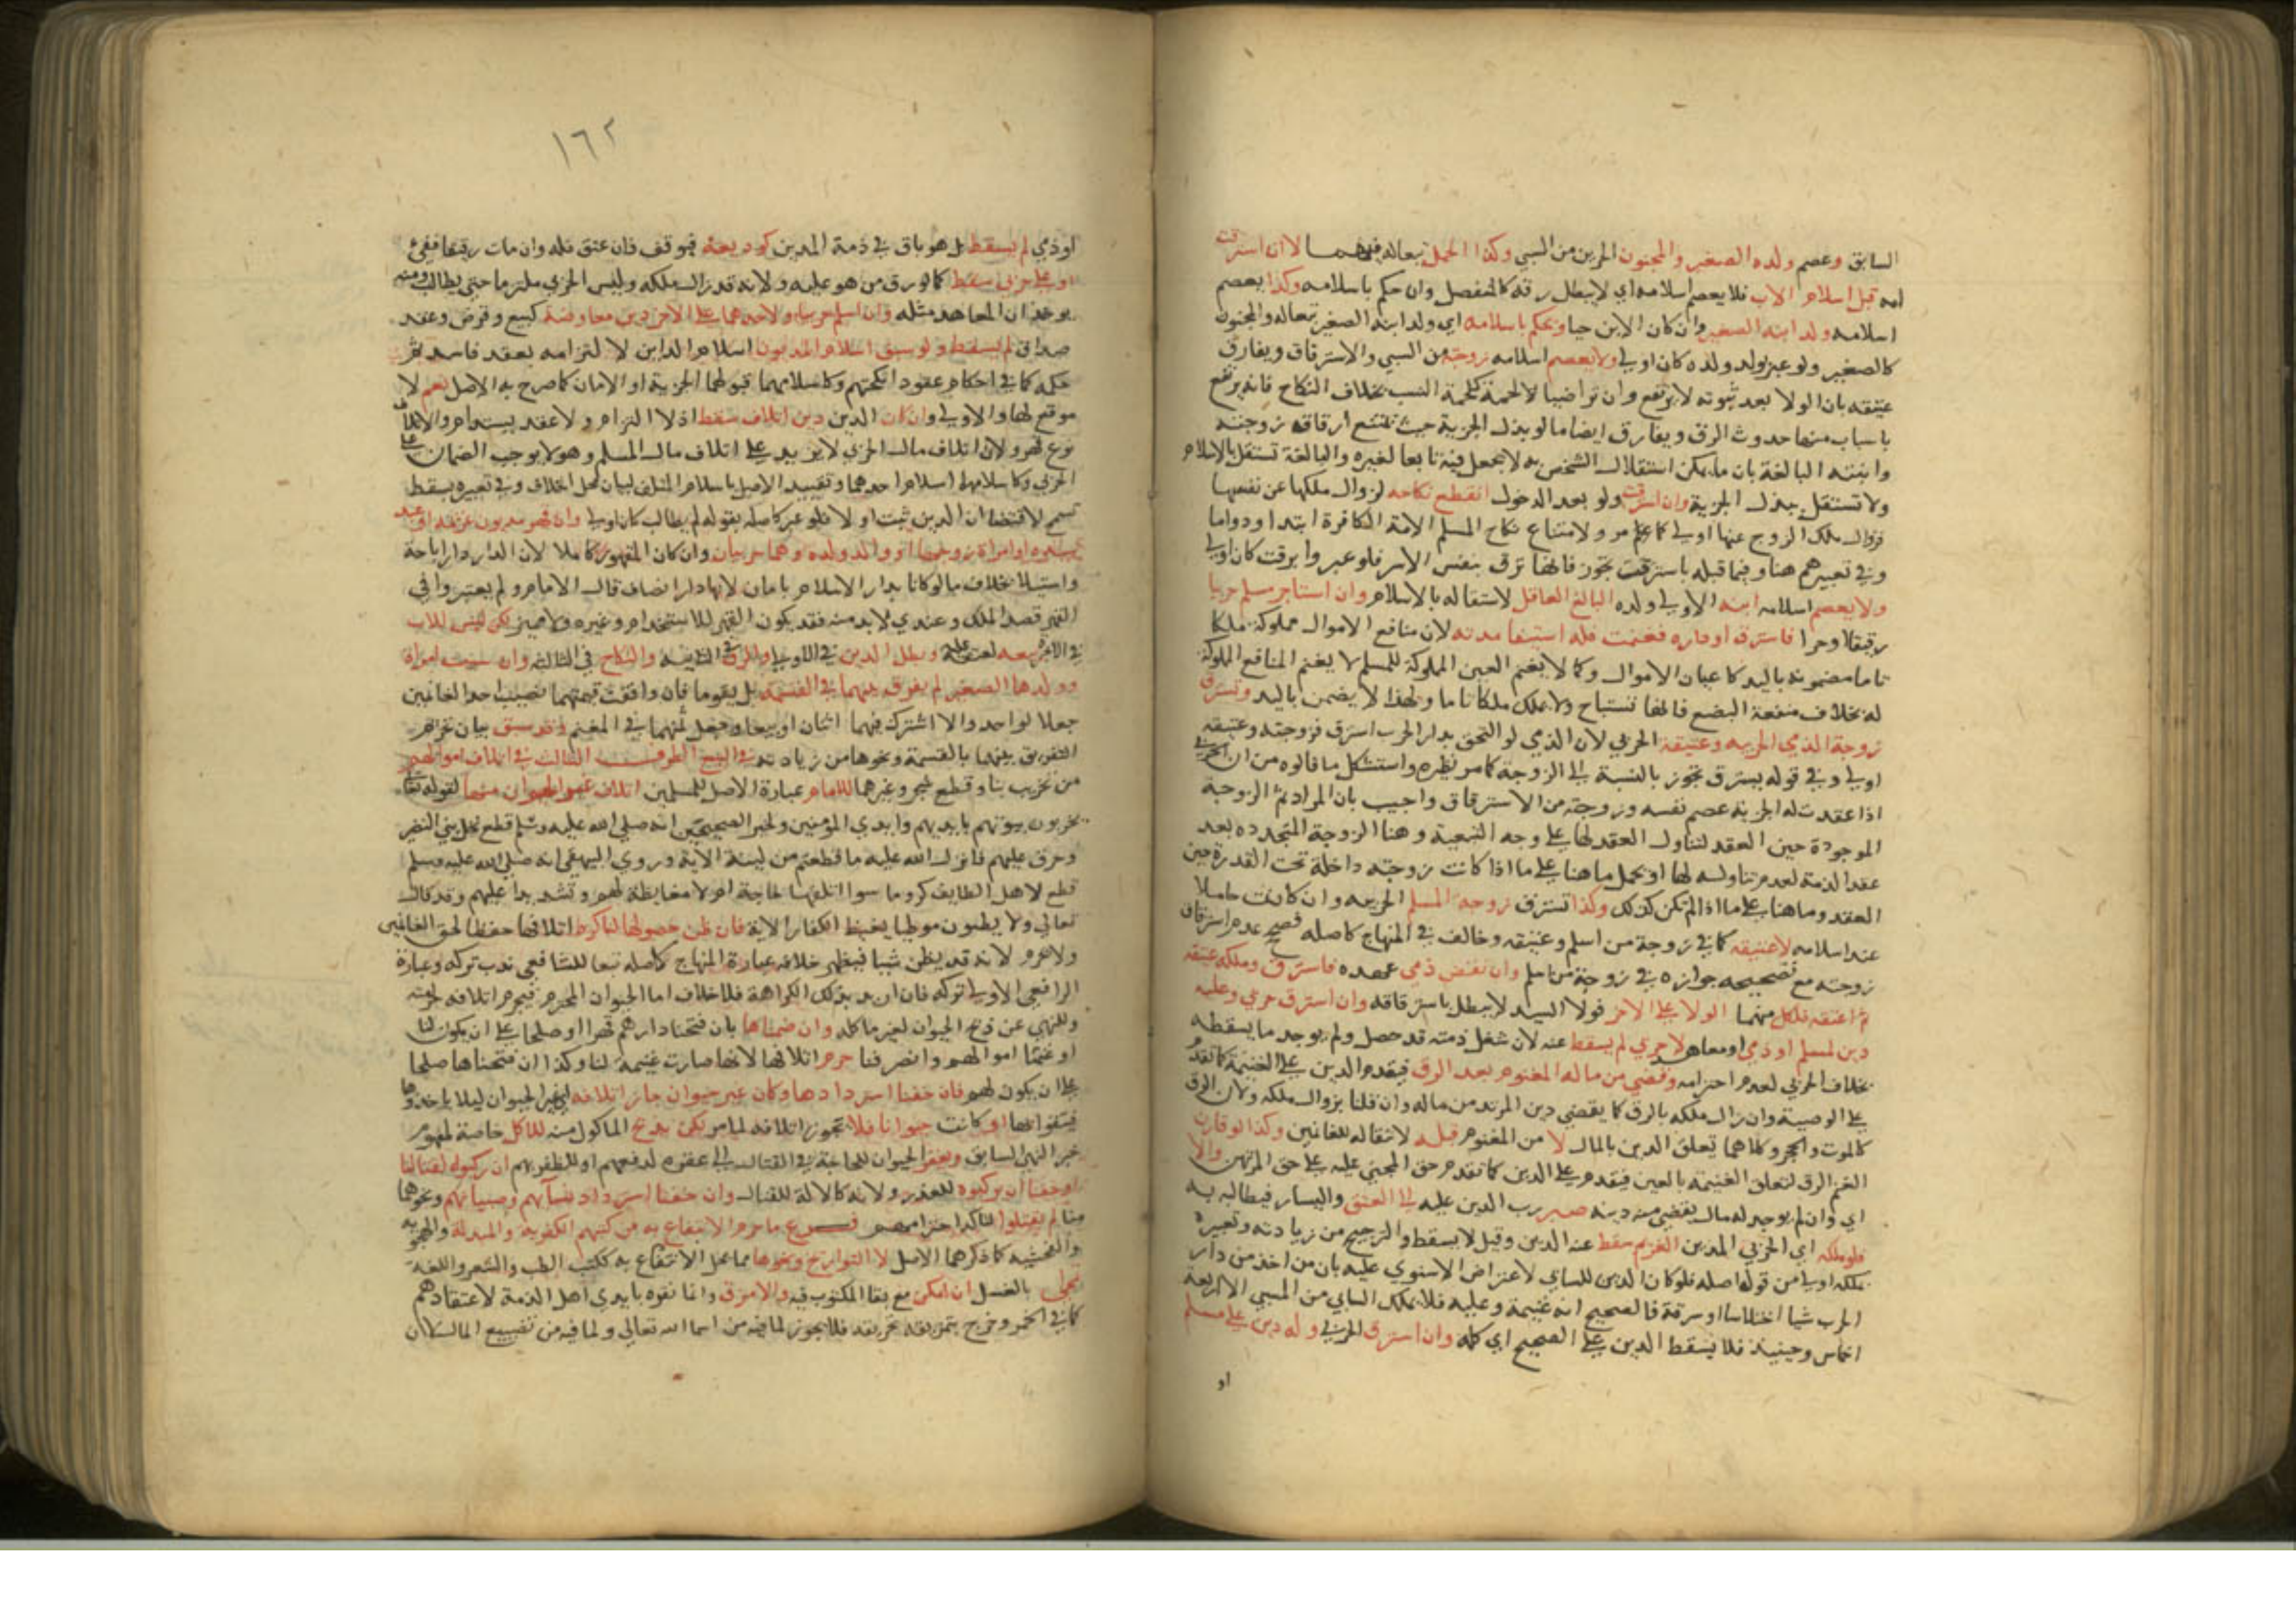 السابق وعصم ولده الصغير والمجنون الحرين من السبي وكذا الحمل تبعا له فيهما لا ان استرقت
امه قبل اسلام الاب فلا يعصم اسلامه اي لا يبطل رقه كالمنفصل وان حكم باسلامه وكذا يعصم
اسلامه ولد ابنه الصغير وان كان الابن حيا ويحكم باسلامه اي ولد ابنه الصغير تبعا له والمجنون
كالصغير ولو عبر بولد ولده كان اولي ولا يعصم اسلامه زوجته من السبي والاسترقاق ويفارق
عتيقه بان الولا بعد ثبوته لا يرتفع وان تراضيا لالحمة كلحمة النسب بخلاف النكاح فانه يرتفع
باسباب منها حدوث الرق ويفارق ايضا ما لو بذل الجزية حيث تمتنع ارقاق زوجته
وابنته البالغة بان ما يمكن استقلال الشخص به لا يجعل فيه تابعا لغيره والبالغة تستقل بالاسلام
ولا تستقل ببذل الجزية وان استرقت ولو بعد الدخول انقطع نكاحه لزوال ملكها عن نفسها
فزوال ملك الزوج عنها اولي كما علم مر ولامتناع نكاح المسلم الامة الكافرة ابتدا ودواما
وفي تعبيرهم هنا وفيما قبله باسترقت تجوز فانها ترق بنفس الاسر فلو عبروا برقت كان اولي
ولا يعصم اسلامه ابنه الاولي ولده البالغ العاقل لاستقلاله بالاسلام وان استاجر مسلم حربيا
رقيقا او حرا فاسترق او داره فغنمت فله استيفا مدته لان منافع الاموال مملوكة ملكا
تاما مضمونة باليد كاعيان الاموال وكما لا يغنم العين المملوكة للمسلم لا يغنم المنافع المملوكة
له بخلاف منفعة البضع فانها تستباح ولا يملك ملكا تاما ولهذا لا يضمن باليد وتسترق
زوجة الذمي الحربية وعتيقه الحربي لان الذمي لو التحق بدار الحرب استرق فزوجته وعتيقه
اولي وفي قوله يسترق تجوز بالنسبة الى الزوجة كما مر نظيره واستشكل ما قالوه من ان الحربي
اذا عقدت له الجزية عصم نفسه وزوجته من الاسترقاق واجيب بان المراد ثم الزوجة
الموجودة حين العقد لتناول العقد لها على وجه التبعية وهنا الزوجة المتجددة بعد
عقد الذمة لعدم تناوله لها او يحمل ما هنا على ما اذا كانت زوجته داخلة تحت القدرة حين
العقد وما هنا على ما اذا لم تكن كذلك وكذا تسترق زوجة المسلم الحربية وان كانت حاملا
عند اسلامه لا عتيقه كما في زوجة من اسلم وعتيقه وخالف في المنهاج كاصله فصحح عدم استرقاق
زوجته مع تصحيحه جوازه في زوجة من اسلم وان نقض ذمي عهده فاسترق وملكه عتيقه
ثم اعتقه فلكل منهما الولا على الاخر فولا السيد لا يبطل باسترقاقه وان استرق حربي وعليه
دين لمسلم او ذمي او معاهد لا حربي لم يسقط عنه لان شغل ذمته قد حصل ولم يوجد ما يسقطه
بخلاف الحربي لعدم احترامه وقضي من ماله المغنوم بعد الرق فيقدم الدين على الغنيمة كما تقدم
على الوصية وان زال ملكه بالرق كما يقضي دين المرتد من ماله وان قلنا بزوال ملكه ولان الرق
كالموت والحجر وكلاهما تعلق الدين بالمال لا من المغنوم قبله لانتقاله للغانمين وكذا لو قارن
الغنم الرق لتعلق الغنيمة بالعين فيقدم على الدين كما تقدم حق المجني عليه على حق المرتهن والا
اي وان لم يوجد له مال يقضي منه دينه صبر رب الدين عليه الى العتق واليسار فيطالبه به
فلو ملكه اي الحربي المدين الغريم سقط عنه الدين وقيل لا يسقط والترجيح من زيادته وتعبيره
بملكه اولي من قول اصله فلو كان الدين للسابي لاعتراض الاسنوي عليه بان من اخذ من دار
الحرب شيا اختلاسا او سرقة فالصحيح انه غنيمة وعليه فلا يملك السابي من المسبي الا اربعة
اخماس وحينئذ فلا يسقط الدين على الصحيح اي كله وان استرق الحربي وله دين على مسلم
او
١٦٢
او ذمي لم يسقط بل هو باق في ذمة المدين كوديعة فيوقف فان عتق فله وان مات رقيقا ففيء
او على حربي سقط كما لو رق من هو عليه ولانه قد زال ملكه وليس الحربي ملتزما حتى يطالب ومنه
يوخذ ان المعاهد مثله وان اسلم حربيا ولاحدهما على الاخر دين معاوضة كبيع وقرض وعقد
صداق لم يسقط ولو سبق اسلام المديون اسلام الداين لالتزامه بعقد فاستمر
حكمه كما في احكام عقود انكحتهم وكاسلامهما قبولهما الجزية او الامان كما صرح به الاصل نعم لا
موقع لها والاولي وان كان الدين دين اتلاف سقط اذ لا التزام ولا عقد يستدام والاتلاف
نوع قهر ولان اتلاف مال الحربي لا يزيد على اتلاف مال المسلم وهو لا يوجب الضمان على
الحربي وكاسلامهما اسلام احدهما وتقييد الاصل باسلام المتلف لبيان محل الخلاف وفي تعبيره بسقط
تسمح لاقتضا ان الدين ثبت اولا فلو عبر كاصله بقوله لم يطالب كان اولي وان قهر مديون غريمه او عبد
سيده او امراة زوجها او والد ولده وهما حربيان وان كان المقهور كاملا لان الدار دار اباحة
واستيلا بخلاف ما لو كانا بدار الاسلام بامان لانها دار انصاف قال الامام ولم يعتبروا في
القهر قصد الملك وعندي لا بد منه فقد يكون القهر للاستخدام وغيره ولا مميز لكن ليس للاب
في الاخيرة بيعه لعتقه عليه وبطل الدين في الاولي والرق في الثانية والنكاح في الثالثة وان سبيت امراة
وولدها الصغير لم يفرق بينهما في القسمة بل يقوما فان وافقت قيمتهما نصيب احد الغانمين
جعلا لواحد والا اشترك فيهما اثنان او بيعا وجعل ثمنهما في المغنم وقد سبق بيان تحريم
التفريق بينهما بالقسمة ونحوها من زيادته في البيع الطرف الثالث في اتلاف اموالهم
من تخريب بنا وقطع شجر وغيرهما للامام عبارة الاصل للمسلمين اتلاف غير الحيوان منها لقوله تعالى
يخربون بيوتهم بايديهم وايدي المؤمنين ولخبر الصحيحين انه صلى الله عليه وسلم قطع نخل بني النضير
وحرق عليهم فانزل الله عليه ما قطعتم من لينة الاية وروى البيهقي انه صلى الله عليه وسلم
قطع لاهل الطايف كروما سوا اتلفها لحاجة ام لا مغايظة لهم وتشديدا عليهم وقد قال
تعالى ولا يطئون موطئا يغيظ الكفار الاية فان ظن حصولها لنا كره اتلافها حفظا لحق الغانمين
ولا يحرم لانه قد يظن شيا فيظهر خلافه عبارة المنهاج كاصله تبعا للشافعي ندب تركه وعبارة
الرافعي الاولي تركه فان اريد بذلك الكراهة فلا خلاف اما الحيوان المحترم فيحرم اتلافه لحرمته
وللنهي عن ذبح الحيوان لغير ماكله وان ضمناها بان فتحنا دارهم قهرا او صلحا على ان يكون لنا
او غنمنا اموالهم وانصرفنا حرم اتلافها لانها صارت غنيمة لنا وكذا ان فتحناها صلحا
على ان يكون لهم فان خفنا استردادها وكان غير حيوان جاز اتلافه اي غير الحيوان ليلا ياخذوها
فيتقوا بها او كانت حيوانا فلا يجوز اتلافه لما مر لكن يذبح الماكول منه للاكل خاصة لمفهوم
خبر النهي السابق ويعقر الحيوان للحاجة في القتال الى عقره لدفعهم او للظفر بهم ان ركبوه لقتالنا
او خفنا ان يركبوه للعذر ولانه كالالة للقتال وان خفنا استرداد نسائهم وصبيانهم ونحوهما
منا لم يقتلوا لتاكد احترامهم فرع ما حرم الانتفاع به من كتبهم الكفرية والمبدلة والهجوية
والفحشية كما ذكرهما الاصل لا التواريخ ونحوها مما يحل الانتفاع به ككتب الطب والشعر واللغة
يمحى بالغسل ان امكن مع بقا المكتوب فيه والا مزق وانما نقره بايدي اهل الذمة لاعتقادهم
كما في الخمر وخرج بتمزيقه تحريقه فلا يجوز لما فيه من اسما الله تعالى ولما فيه من تضييع المال لان